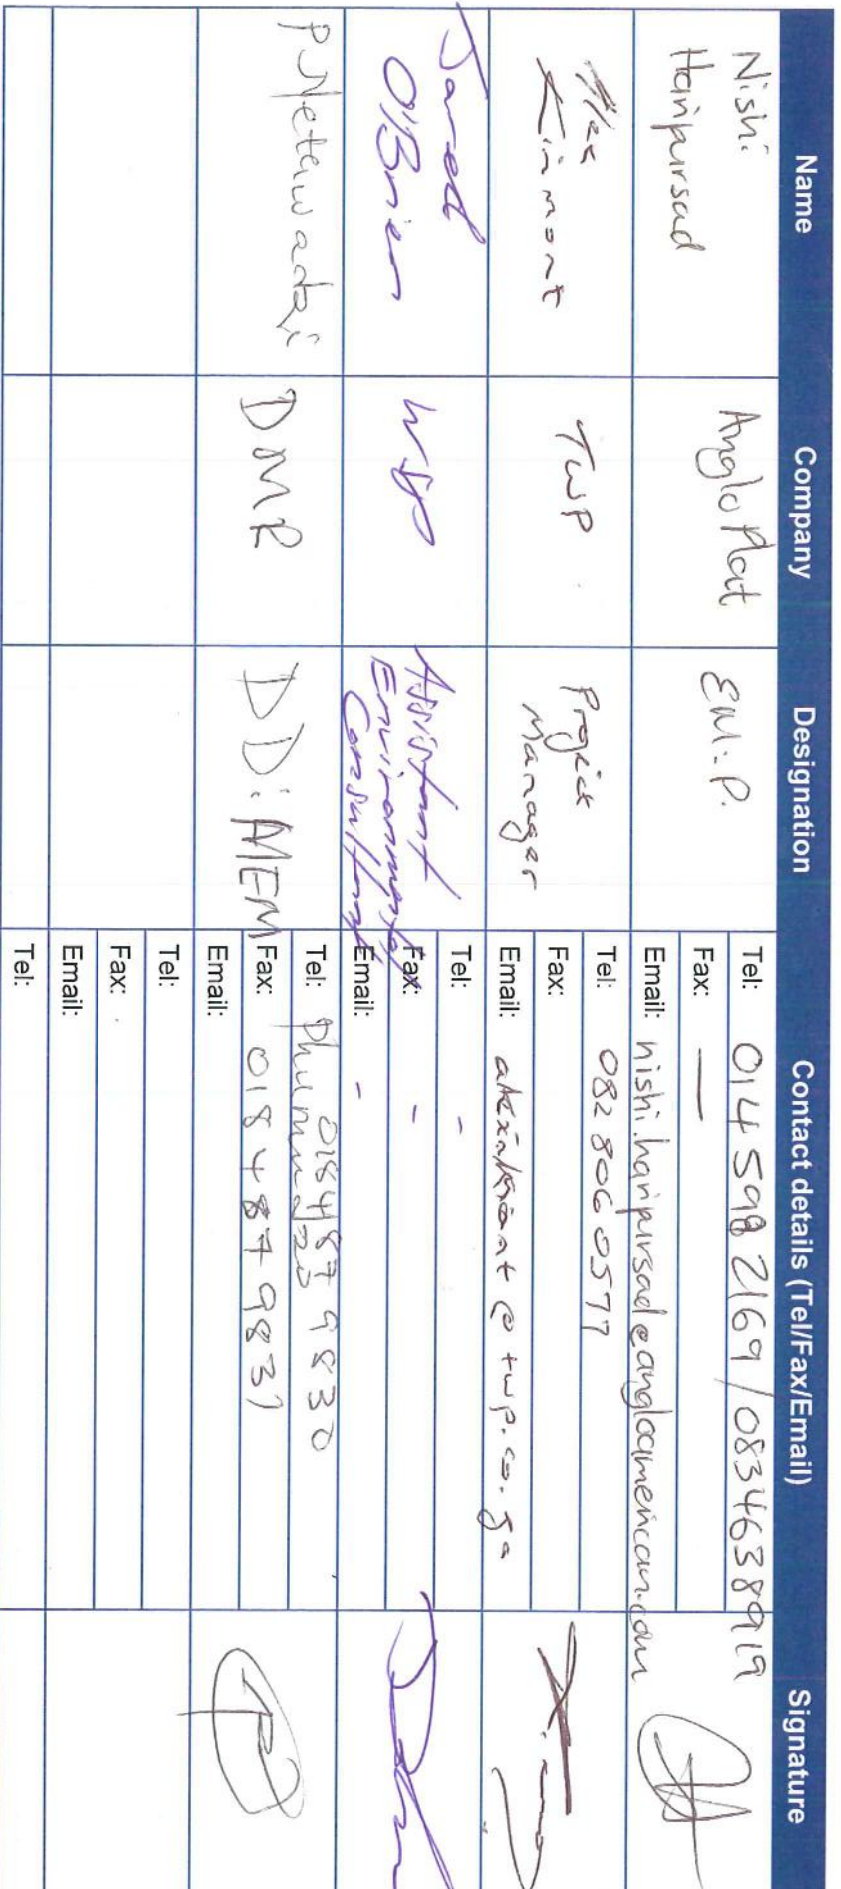 Name Company Designation Contact details (Tel/Fax/Email) Signature
Nishi
Haripursad
Anglo Plat
E.M.P.
Tel: 014 598 2169 / 0834638919
Fax: —
Email: nishi.haripursad@angloamerican.com
Alex
Kinmont
TWP
Project
Manager
Tel: 082 806 0577
Fax:
Email:
Jared
O'Brien
WSP
Assistant
Environmental
Consultant
Tel: -
Fax: -
Email: -
P. Netshwadzi
DMR
DD: MEM
Tel: 018 487 9830
Fax: 018 487 9831
Email:
Tel:
Fax:
Email:
Tel: